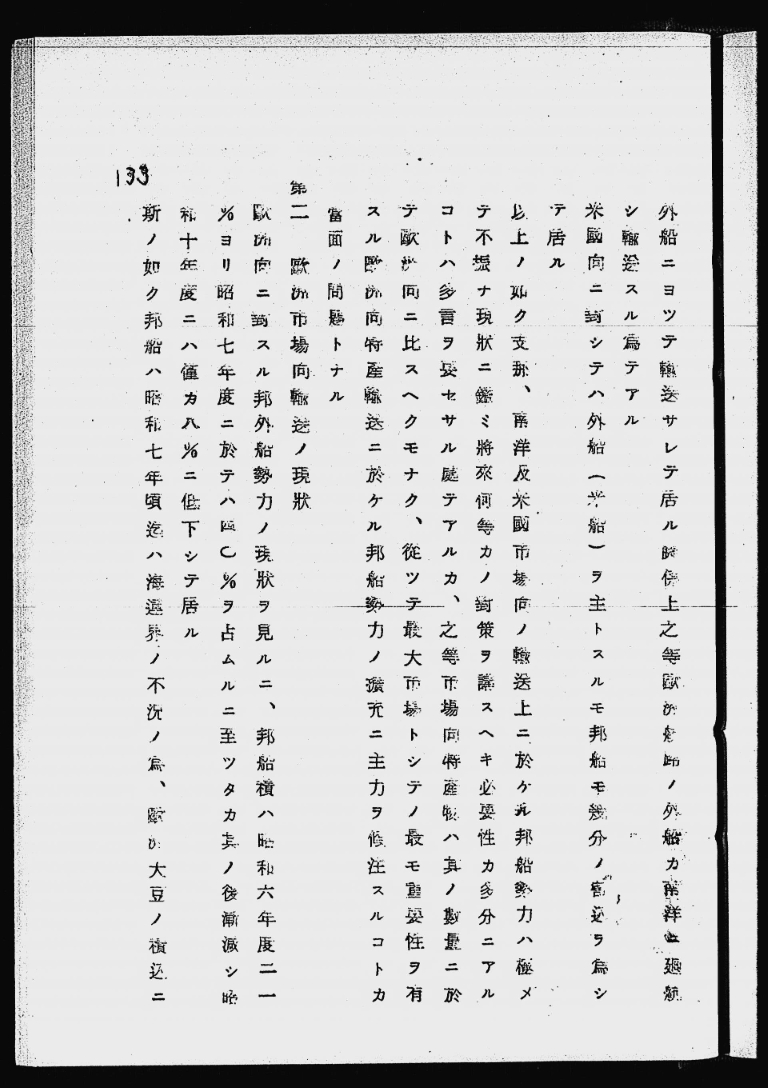 外船ニヨツテ輸送サレテ居ル 上之等歐洲航路ノ外船カ南洋ニ廻航
シ輸送スル爲テアル
米國向ニ對シテハ外船(米船)ヲ主トスルモ邦船モ幾分ノ積込ヲ爲シ
テ居ル
以上ノ如ク支那、南洋及米國市場向ノ輸送上ニ於ケル邦船勢力ハ極メ
テ不振ナ現狀ニ鑑ミ將來何等カノ對策ヲ講スヘキ必要性カ多分ニアル
コトハ多言ヲ要セサル處テアルカ、之等市場向特產物ハ其ノ數量ニ於
テ歐洲向ニ比スヘクモナク、從ツテ最大市場トシテノ最モ重要性ヲ有
スル歐洲向特產輸送ニ於ケル邦船勢力ノ擴充ニ主力ヲ傾注スルコトカ
當面ノ問題トナル
第二 歐洲市場向輸送ノ現狀
歐洲向ニ對スル邦外船勢力ノ現狀ヲ見ルニ、邦船積ハ昭和六年度二一
%ヨリ昭和七年度ニ於テハ四〇%ヲ占ムルニ至ツタカ其ノ後漸減シ昭
和十年度ニハ僅カ八%ニ低下シテ居ル
斯ノ如ク邦船ハ昭和七年頃迄ハ海運界ノ不況ノ爲、歐洲大豆ノ積込ニ
133